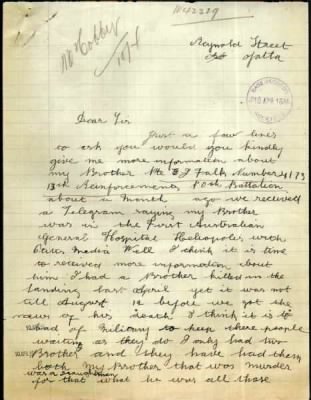 Reynold Street
Dear Sir
Just a few lines
to ask you would you kindly
give me more information about
my Brother Pte E J Falk Number 4173
13th Reinforcements Battalion
about a month ago we received
a Telegram saying my Brother
was in the First Australian
General Hospital Heliopolis with
Well I think it is time
to received more information about
him I had a Brother killed in the
landing last April yet it was not
till August 12 before we got the
news of his death I think it is
of Military to keep there people
waiting as they do I only had two
Brother and they have had them
both my Brother that was murder
for that what he was all those